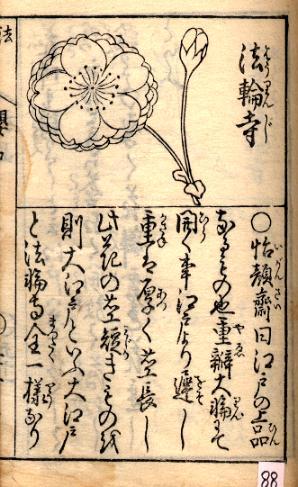 法輪寺
〇怡顔齋曰江戸の上品
なるもの也重瓣大輪にて
開く事江戸より遲し
重は厚く茎長し
此花の茎短きものを
則大江戸といふ大江戸
と法輪寺全一様なり
88